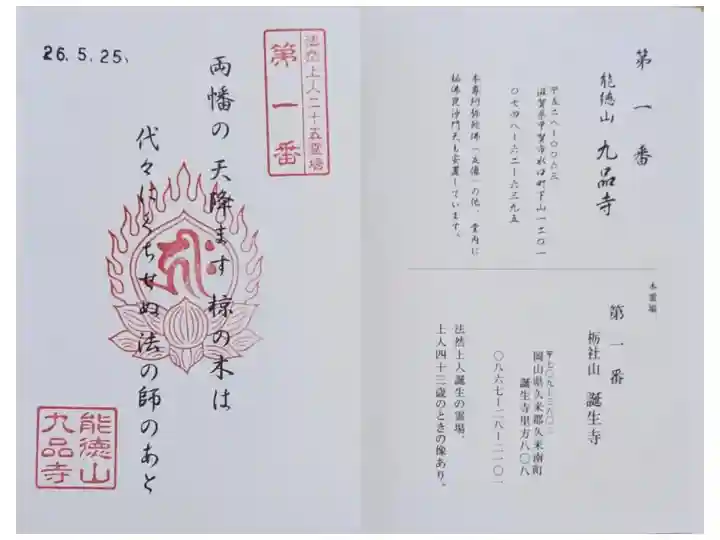 第一番
能徳山 九品寺
〒五二八－〇〇六三
滋賀県甲賀市水口町下山一二〇一
〇七四八－六二－六三九五
本尊阿弥陀佛「立像」の他、堂内に
秘佛毘沙門天も安置しています。
本霊場
第一番
栃社山 誕生寺
〒七〇九－三六〇二
岡山県久米郡久米南町
誕生寺里方八〇八
〇八六七－二八－二一〇一
法然上人誕生の霊場。
上人四十三歳のときの像あり。
法然上人二十五霊場
第一番
両幡の 天降ます 椋の木は
代々はくちせぬ 法の師のあと
26.5.25、
能徳山
九品寺